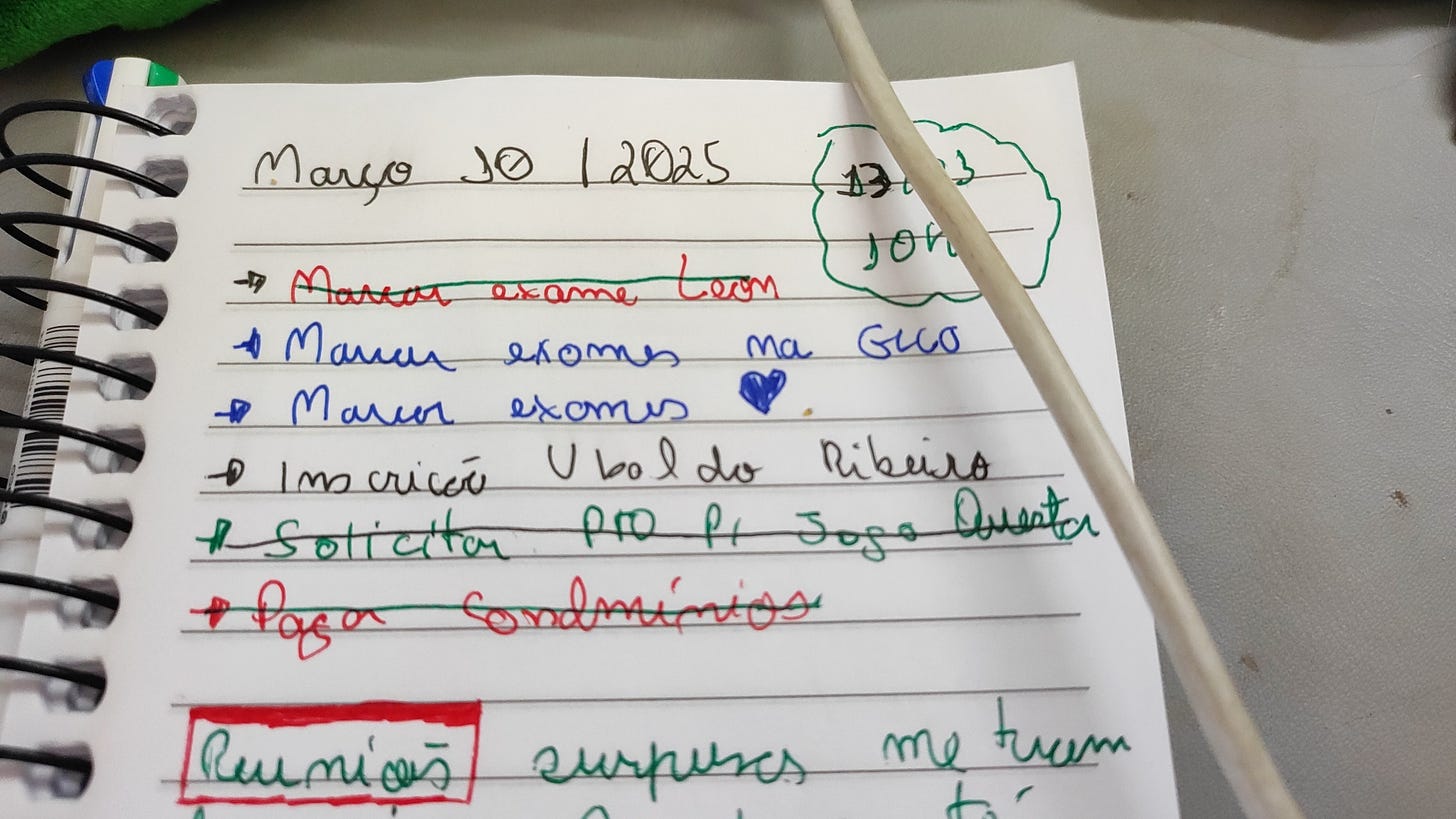 Março 10 | 2025
13
10h
→ Marcar exame Leon
→ Marcar exames na GECO
→ Marcar exames ♥.
→ Inscrição Ubaldo Ribeiro
→ Solicitar PTO p/ Jogo
→ Pagar Condmínios
Reuniões surpresas me